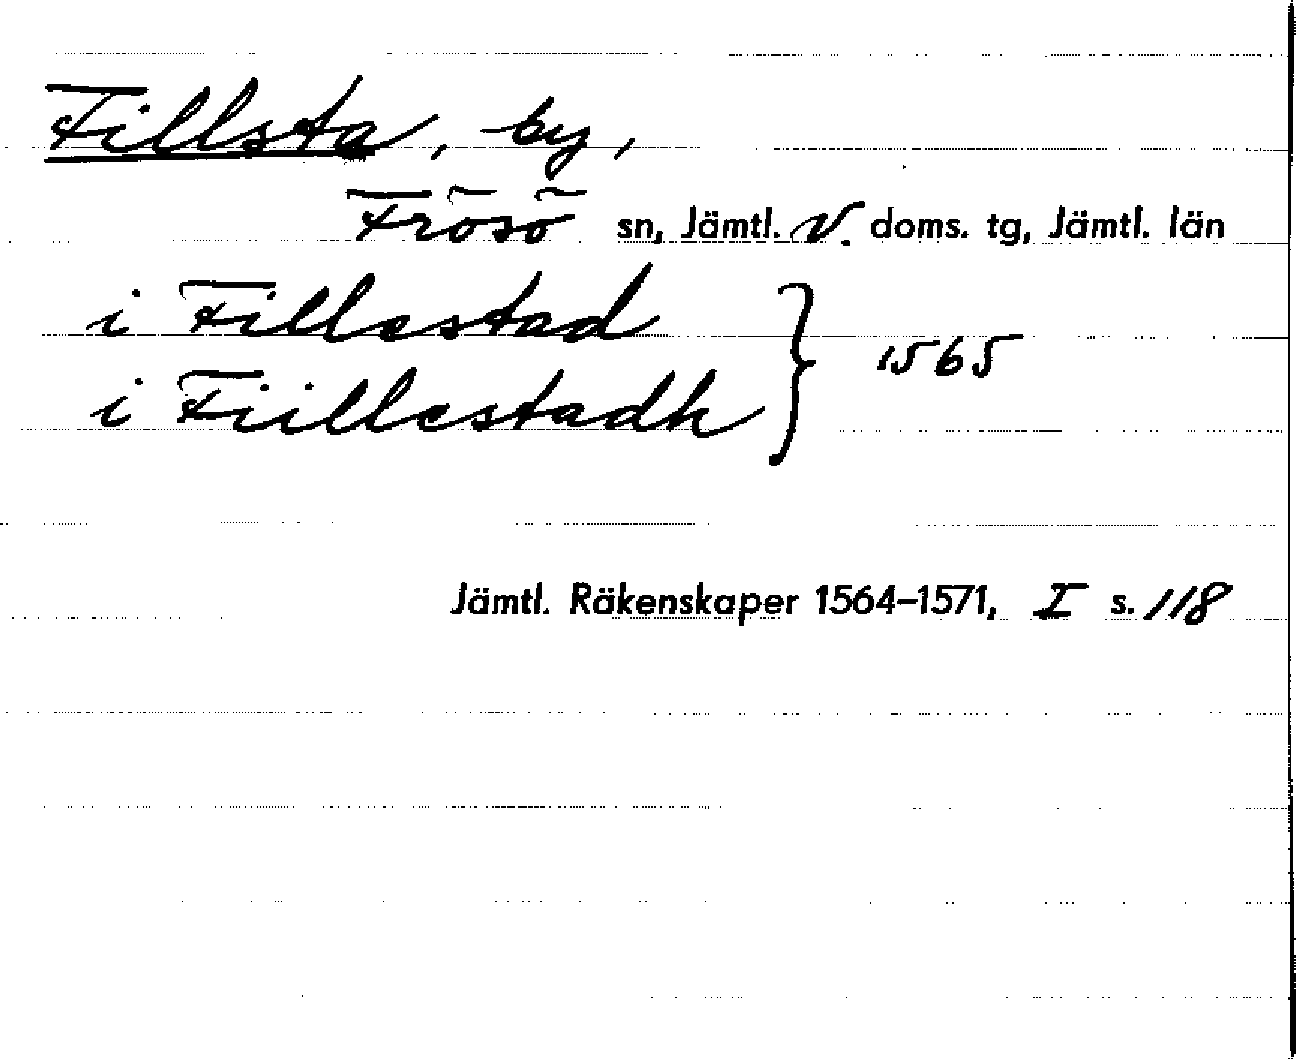 Fillsta, by,
Frösö sn, Jämtl. V. doms. tg, Jämtl. län
i Fillestad
i Fiillestadh } 1565
Jämtl. Räkenskaper 1564–1571, I s. 118